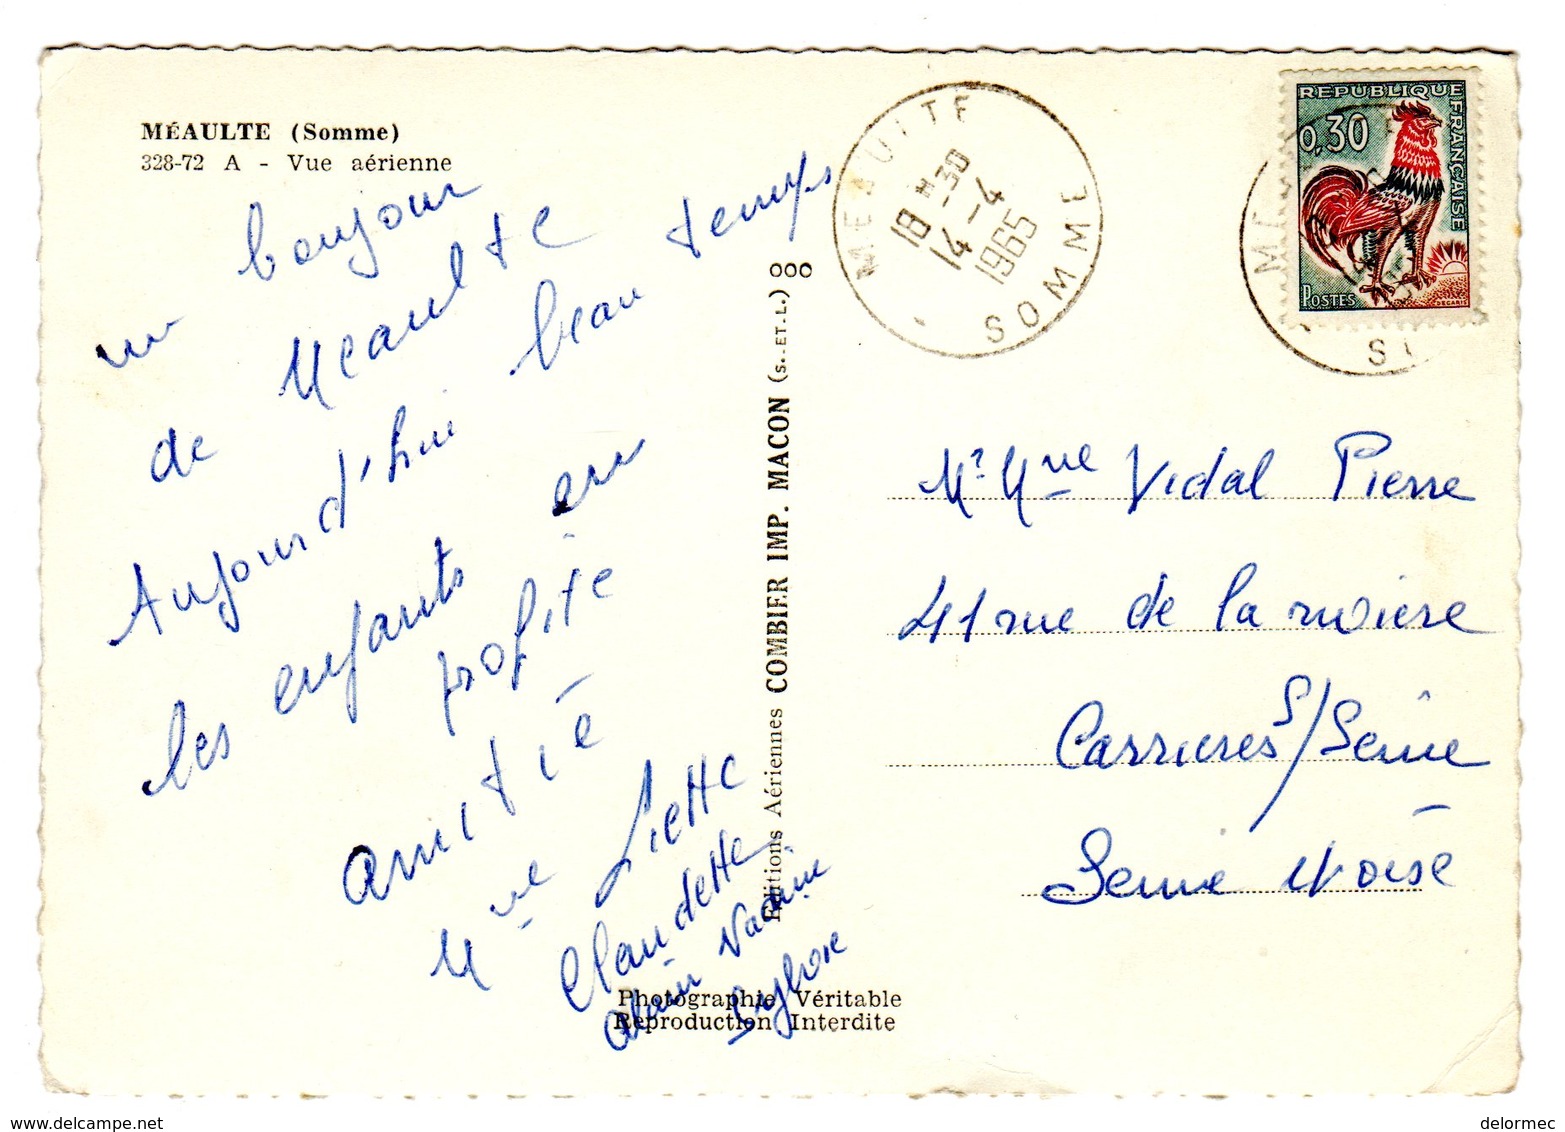 MÉAULTE (Somme)
328-72 A - Vue aérienne
un bonjour
de Meaulte
Aujourd'hui beau temps
les enfants en
profite
amitié
Mme Liette
Claudette
Alain Nadine
Sylvie
Editions Aériennes COMBIER IMP. MACON (S.-ET-L.) OOO
Photographie Véritable
Reproduction Interdite
MEAULTE
18 H-30
14 -4
1965
SOMME
REPUBLIQUE FRANÇAISE
0,30
POSTES
DECARIS
Mr Mme Vidal Pierre
41 rue de la rivière
Carrieres S/Seine
Seine et Oise
delcampe.net
delormec